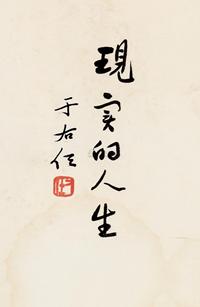 現实的人生
于右任